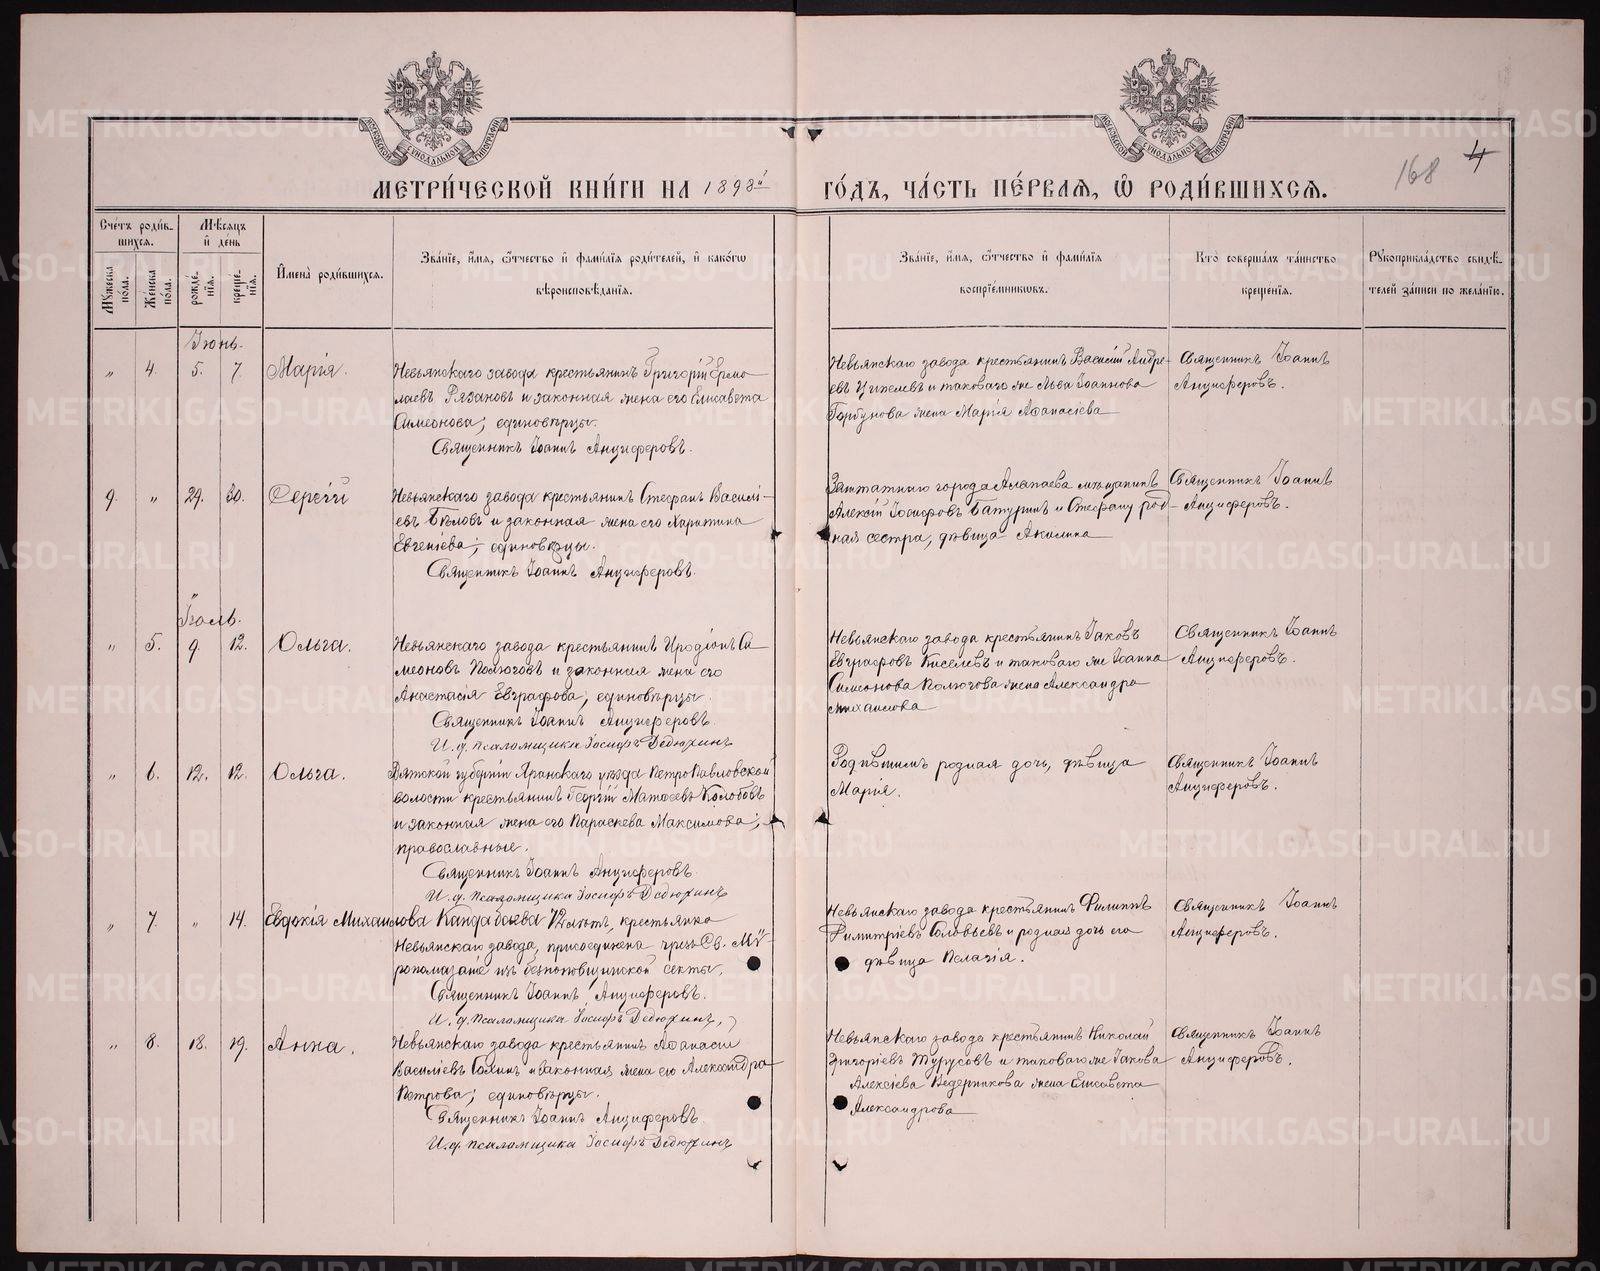 МЕТРИ́ЧЕСКОЙ КНИ́ГИ НА 1898й ГО́ДЪ, ЧА́СТЬ ПЕ́РВАѦ, Ѽ РОДИ́ВШИХСѦ.
168 4
МОСКОВСКОЙ СѴНОДАЛЬНОЙ ТИПОГРАФІИ
МОСКОВСКОЙ СѴНОДАЛЬНОЙ ТИПОГРАФІИ
Сче́тъ роди́в-
шихсѧ.
Мꙋ́жеска по́ла.
Же́нска по́ла.
Мѣ́сѧцъ
и҆ де́нь
рожде́-
нїѧ.
креще́-
нїѧ.
И҆мена̀ роди́вшихсѧ.
Зва́нїе, и҆́мѧ, ѻ҆́тчество и҆ фами́лїѧ роди́телей, и҆ како́гѡ
вѣроисповѣ́данїѧ.
Зва́нїе, и҆́мѧ, ѻ҆́тчество и҆ фами́лїѧ
воспрїе́мникѡвъ.
Кто̀ соверша́лъ та́инство
креще́нїѧ.
Рꙋкоприкла́дство свидѣ́-
телей за́писи по жела́нїю.
Іюнь.
„ 4. 5. 7. Марія.
Невьянскаго завода крестьянинъ Григорій Ермо-
лаевъ Рязановъ и законная жена его Елисавета
Симеонова; единовѣрцы.
Священникъ Іоаннъ Анциферовъ.
Невьянскаго завода крестьянинъ Василій Андре-
евъ и таковаго же Льва Іоаннова
Горбунова жена Марія Аѳанасіева
Священникъ Іоаннъ
Анциферовъ.
9. „ 29. 30. Сергій
Невьянскаго завода крестьянинъ Стефанъ Василі-
евъ Бѣловъ и законная жена его Харитина
Евгеніева; единовѣрцы.
Священникъ Іоаннъ Анциферовъ.
Заштатнаго города Алапаева мѣщанинъ
Алексій Іосифовъ Батуринъ и Стефану род-
ная сестра, дѣвица Акилина
Священникъ Іоаннъ
Анциферовъ.
Іюль.
„ 5. 9. 12. Ольга.
Невьянскаго завода крестьянинъ Иродіонъ Си-
меоновъ Полюговъ и законная жена его
Анастасія Евграфова; единовѣрцы.
Священникъ Іоаннъ Анциферовъ.
И. д. псаломщика Іосифъ Дедюхинъ
Невьянскаго завода крестьянинъ Іаковъ
Евграфовъ Киселевъ и таковаго же Іоанна
Симеонова Полюгова жена Александра
Михаилова
Священникъ Іоаннъ
Анциферовъ.
„ 6. 12. 12. Ольга.
Вятской губерніи Яранскаго уѣзда Петропавловской
волости крестьянинъ Георгій Матѳеевъ Колобовъ
и законная жена его Параскева Максимова;
православные.
Священникъ Іоаннъ Анциферовъ.
И. д. псаломщика Іосифъ Дедюхинъ
Родившимъ родная дочь, дѣвица
Марія.
Священникъ Іоаннъ
Анциферовъ.
„ 7. „ 14. Евдокія Михаилова Кандабаева 72 лѣтъ, крестьянка
Невьянскаго завода, присоединена чрезъ Св. Мѵ-
ропомазаніе изъ безпоповщинской секты.
Священникъ Іоаннъ Анциферовъ.
И. д. псаломщика Іосифъ Дедюхинъ
Невьянскаго завода крестьянинъ Филиппъ
Димитріевъ Соловьевъ и родная дочь его
дѣвица Пелагія.
Священникъ Іоаннъ
Анциферовъ.
„ 8. 18. 19. Анна.
Невьянскаго завода крестьянинъ Аѳанасій
Василіевъ и законная жена его Александра
Петрова; единовѣрцы.
Священникъ Іоаннъ Анциферовъ.
И. д. псаломщика Іосифъ Дедюхинъ
Невьянскаго завода крестьянинъ Николай
Григоріевъ Турусовъ и таковаго же Іакова
Алексіева Ведерникова жена Елисавета
Александрова
Священникъ Іоаннъ
Анциферовъ.
METRIKI.GASO-URAL.RU